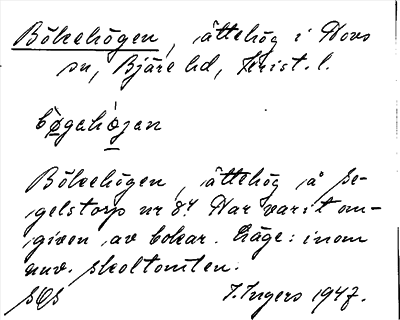 Bökehögen, ättehög i Hovs
sn, Bjäre hd, Krist. l.
bøgahøjan
Bökehögen, ättehög å Se-
gelstorp nr 84. Har varit om-
given av bokar. Läge: inom
nuv. skoltomten.
I. Ingers 1947.